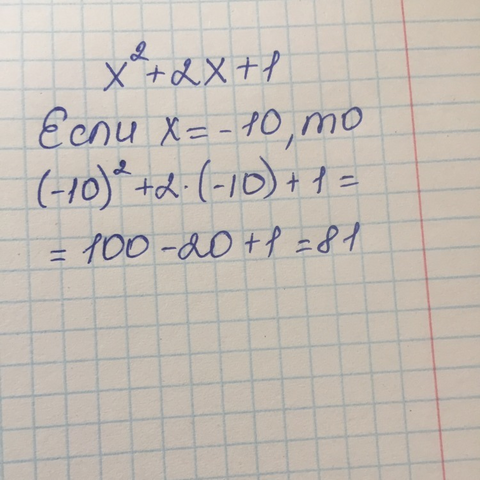 x²+2x+1
Если x=-10, то
(-10)²+2·(-10)+1=
=100-20+1=81